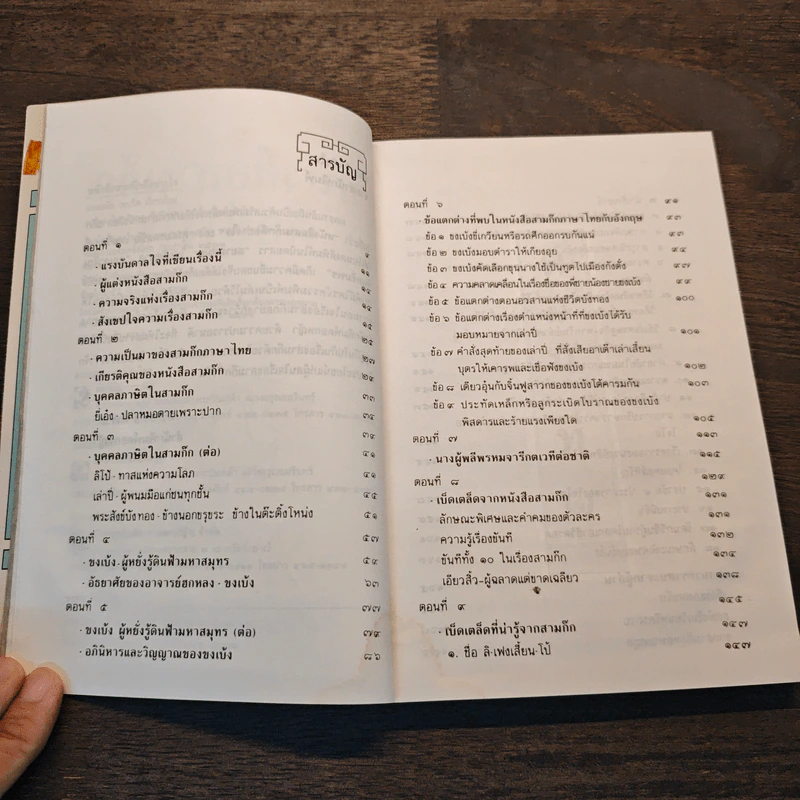 สารบัญ
ตอนที่ ๑ ๙
- แรงบันดาลใจที่เขียนเรื่องนี้ ๑๑
- ผู้แต่งหนังสือสามก๊ก ๑๑
- ความจริงแห่งเรื่องสามก๊ก ๑๔
- สังเขปใจความเรื่องสามก๊ก ๑๕
ตอนที่ ๒ ๒๕
- ความเป็นมาของสามก๊กภาษาไทย ๒๗
- เกียรติคุณของหนังสือสามก๊ก ๒๙
- บุคคลภาษิตในสามก๊ก ๓๓
ยี่เอ๋ง - ปลาหมอตายเพราะปาก ๓๔
ตอนที่ ๓ ๓๙
- บุคคลภาษิตในสามก๊ก (ต่อ) ๔๑
ลิโป้ - ทาสแห่งความโลภ ๔๑
เล่าปี่ - ผู้พนมมือแก่ชนทุกชั้น ๔๕
พระสังข์บังทอง - ข้างนอกขรุขระ ข้างในต๊ะติ๊งโหน่ง ๕๑
ตอนที่ ๔ ๕๗
- ขงเบ้ง - ผู้หยั่งรู้ดินฟ้ามหาสมุทร ๕๙
- อัธยาศัยของอาจารย์ฮกหลง - ขงเบ้ง ๖๓
ตอนที่ ๕ ๗๗
- ขงเบ้ง ผู้หยั่งรู้ดินฟ้ามหาสมุทร (ต่อ) ๗๙
- อภินิหารและวิญญาณของขงเบ้ง ๘๖
ตอนที่ ๖ ๙๑
- ข้อแตกต่างที่พบในหนังสือสามก๊กภาษาไทยกับอังกฤษ ๙๓
ข้อ ๑ ขงเบ้งขี่เกวียนหรือรถศึกออกรบกันแน่ ๙๓
ข้อ ๒ ขงเบ้งมอบตำราให้เกียงอุย ๙๔
ข้อ ๓ ขงเบ้งคัดเลือกขุนนางใช้เป็นทูตไปเมืองกังตั๋ง ๙๗
ข้อ ๔ ความคลาดเคลื่อนในเรื่องชื่อของพี่ชายน้องชายขงเบ้ง ๙๙
ข้อ ๕ ข้อแตกต่างตอนอวสานแห่งชีวิตบังทอง ๑๐๐
ข้อ ๖ ข้อแตกต่างเรื่องตำแหน่งหน้าที่ที่ขงเบ้งได้รับ
มอบหมายจากเล่าปี่ ๑๐๑
ข้อ ๗ คำสั่งสุดท้ายของเล่าปี่ ที่สั่งเสียอาเต๊าเล่าเสี้ยน
บุตรให้เคารพและเชื่อฟังขงเบ้ง ๑๐๒
ข้อ ๘ เดียวอุ๋นกับจิ๋นฟูสาวกของขงเบ้งโต้คารมกัน ๑๐๓
ข้อ ๙ ประทัดเหล็กหรือลูกระเบิดโบราณของขงเบ้ง
พิสดารและร้ายแรงเพียงใด ๑๐๕
ตอนที่ ๗ ๑๑๓
- นางผู้พลีพรหมจารีกตเวทีต่อชาติ ๑๑๕
ตอนที่ ๘ ๑๒๙
- เบ็ดเตล็ดจากหนังสือสามก๊ก ๑๓๑
ลักษณะพิเศษและคำคมของตัวละคร ๑๓๑
ความรู้เรื่องขันที ๑๓๒
ขันทีทั้ง ๑๐ ในเรื่องสามก๊ก ๑๓๔
เอียวสิ้ว-ผู้ฉลาดแต่ขาดเฉลียว ๑๓๘
ตอนที่ ๙ ๑๔๕
- เบ็ดเตล็ดที่น่ารู้จากสามก๊ก ๑๔๗
๑. ชื่อ ลิ-เฟงเสี้ยน-โป้ ๑๔๗